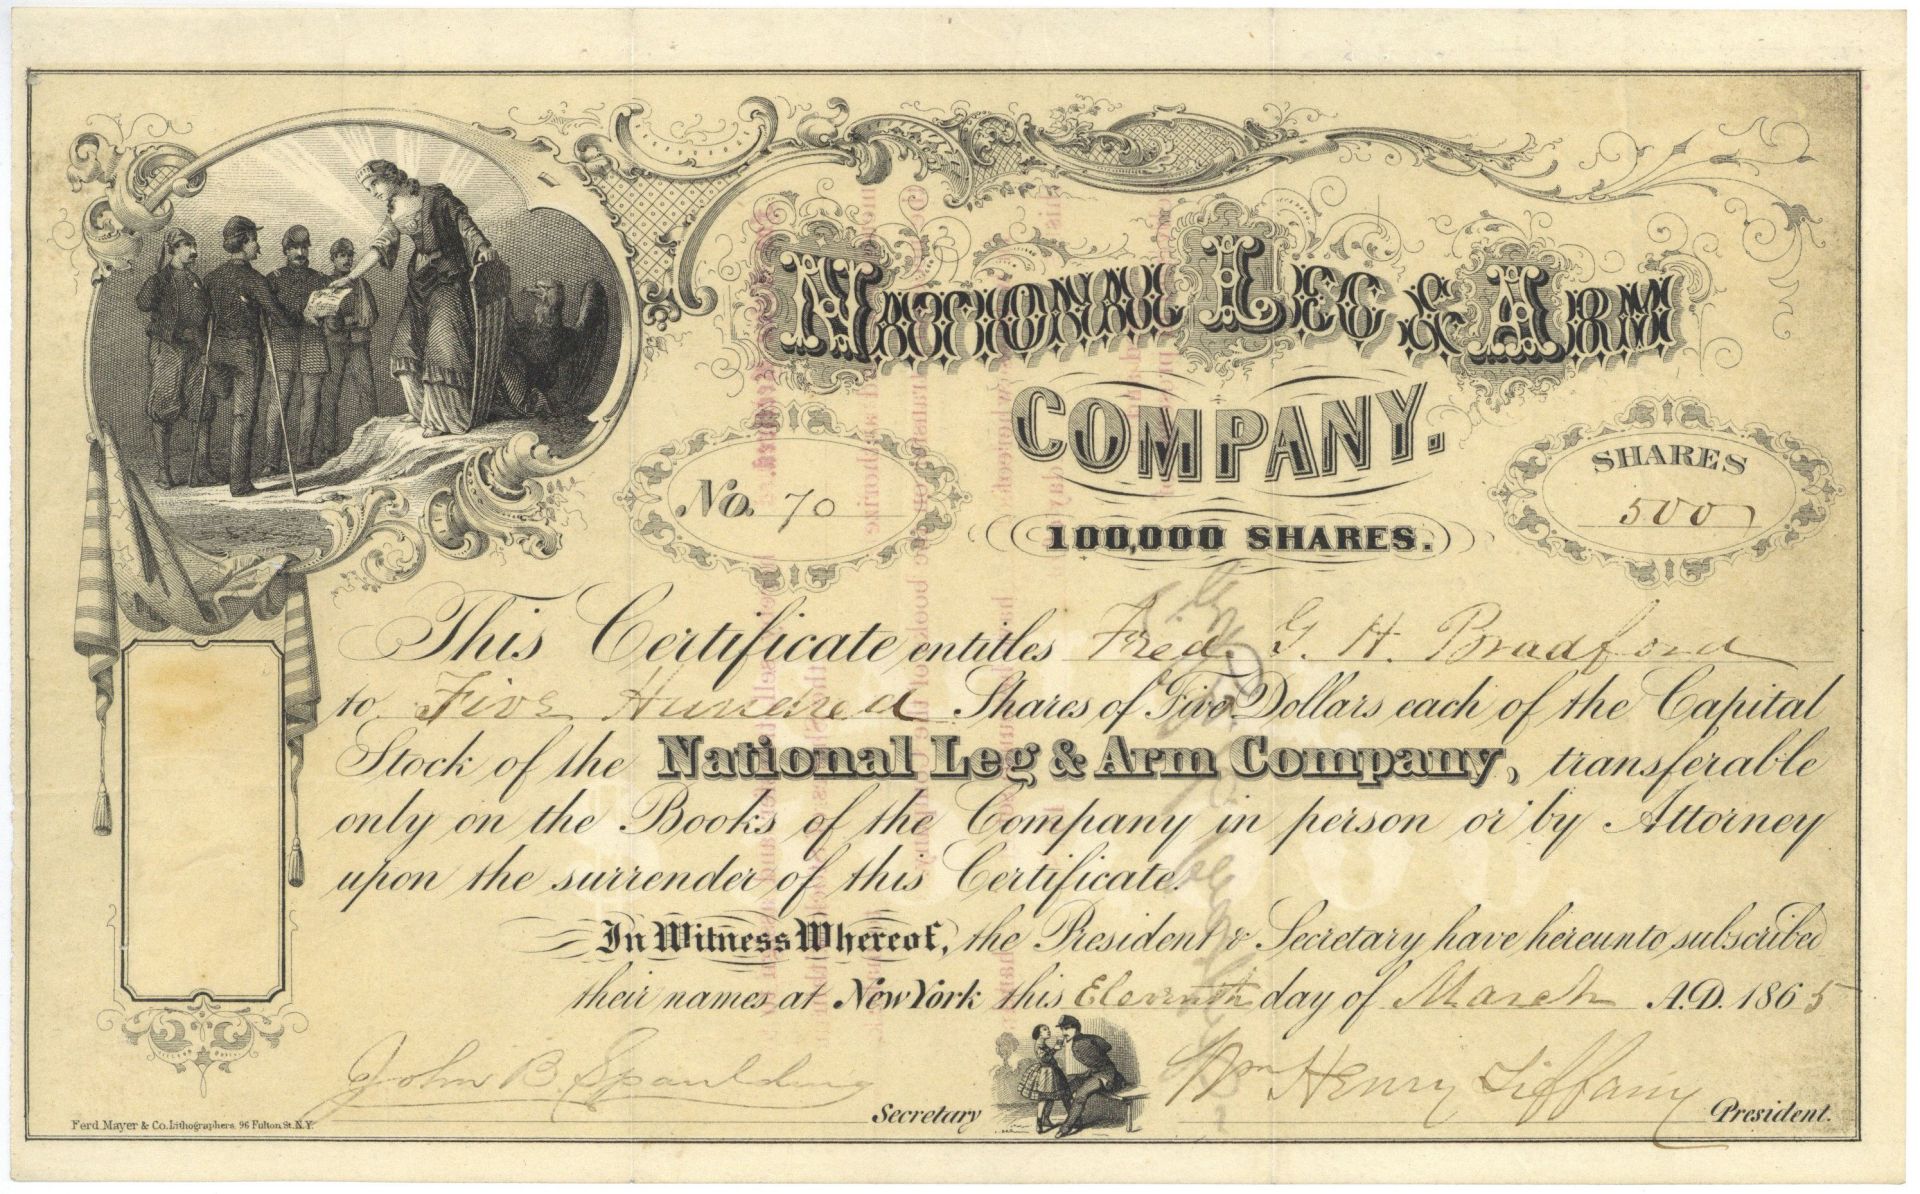 National Leg & Arm
Company.
No. 70
100,000 Shares.
Shares
500
This Certificate entitles Fred. G. H. Bradford
to Five Hundred Shares of Five Dollars each of the Capital
Stock of the National Leg & Arm Company, transferable
only on the Books of the Company in person or by Attorney
upon the surrender of this Certificate.
In Witness Whereof, the President & Secretary have hereunto subscribed
their names at New York this Eleventh day of March A.D. 1865
John B. Spaulding Secretary
Wm Henry Tiffany President.
Ferd Mayer & Co. Lithographers, 96 Fulton St. N.Y.